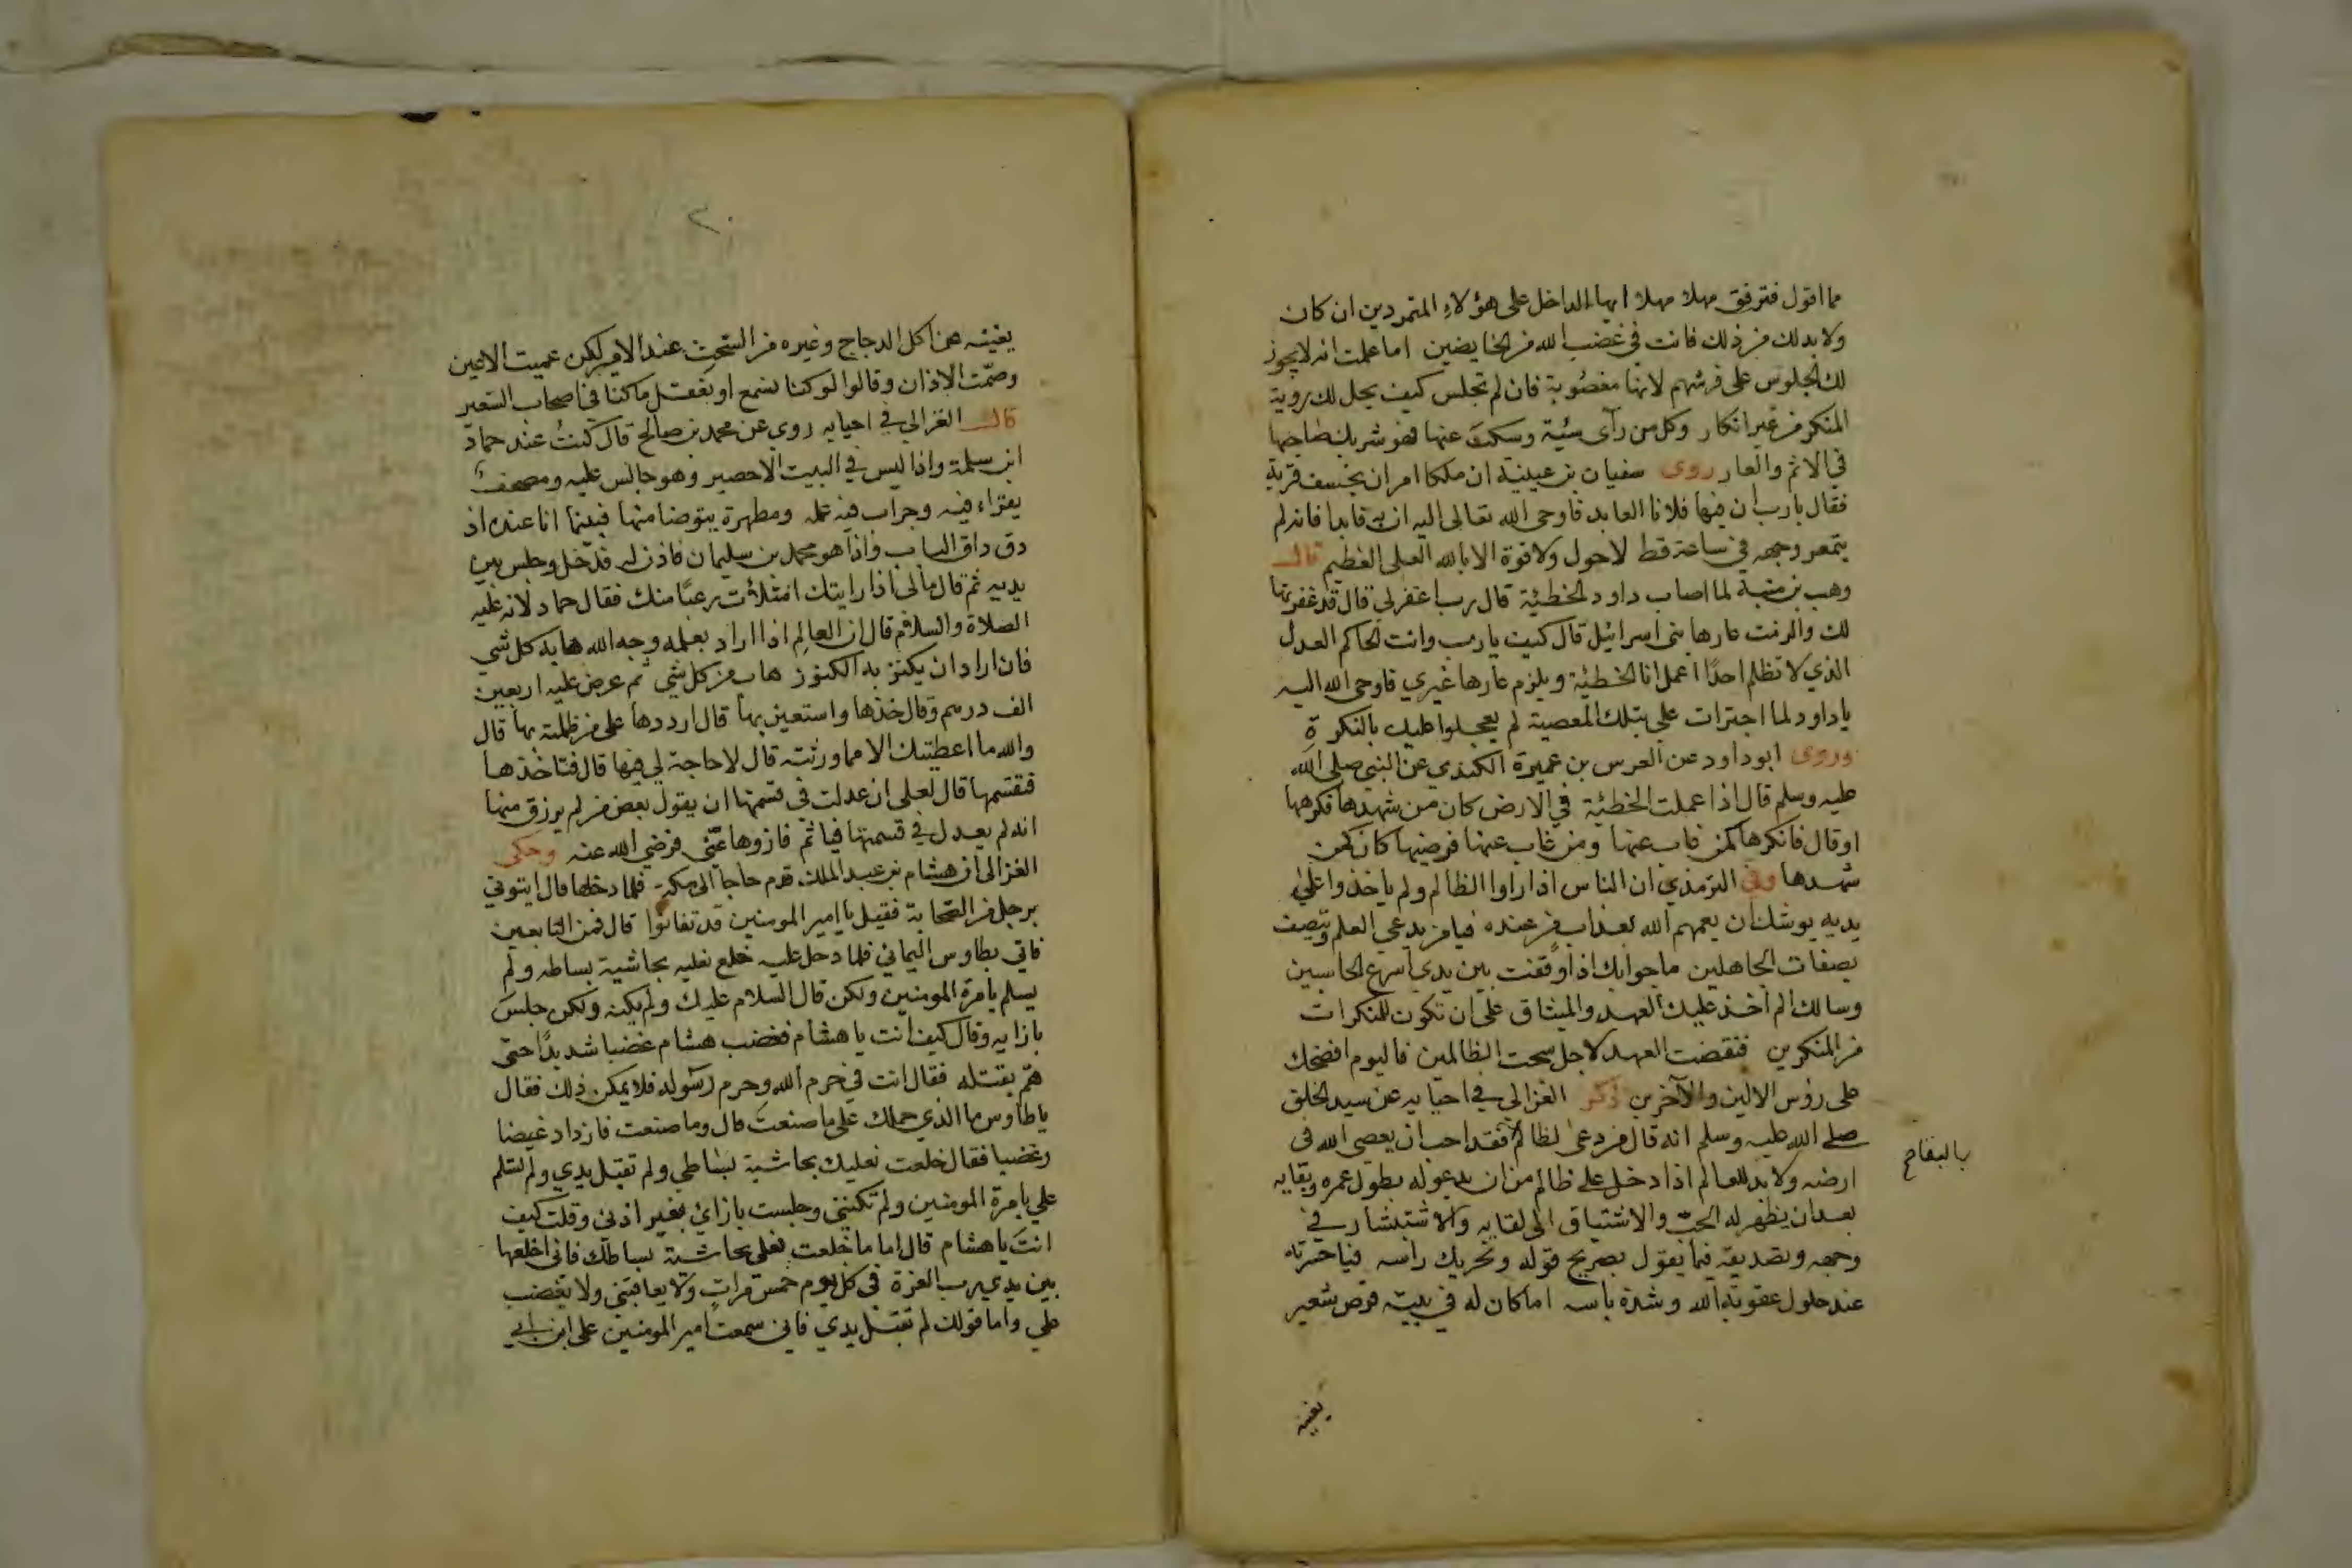 مما اقول فترفق مهلا مهلا ايها الداخل على هؤلاء المتمردين ان كان
ولا بد لك من ذلك فانت في غضب الله من الخايضين اما علمت انه لا يجوز
لك الجلوس على فرشهم لانها مغصوبة فان لم تجلس كيف يحل لك روية
المنكر من غير انكار وكل من رآى سيئة وسكت عنها فهو شريك صاحبها
في الاثم والعار روى سفيان بن عيينة ان ملكا امر ان يخسف قرية
فقال يارب ان فيها فلانا العابد فاوحى الله تعالى اليه ان به فابدا فانه لم
يتمعر وجهه في ساعة قط لا حول ولا قوة الا بالله العلى العظيم قال
وهب بن منبه لما اصاب داود الخطيئة قال رب اغفر لي قال قد غفرتها
لك والزمت عارها بنى اسرائيل قال كيف يا رب وانت الحاكم العدل
الذي لا تظلم احدًا اعمل انا الخطيئة ويلزم عارها غيري فاوحى الله اليه
يا داود لما اجترات على بتلك المعصية لم يعجلوا عليك بالنكرة
وروى ابو داود عن العرس بن عميرة الكندي عن النبي صلى الله
عليه وسلم قال اذا عملت الخطيئة في الارض كان من شهدها فكرهها
او قال فانكرها كمن غاب عنها ومن غاب عنها فرضيها كان كمن
شهدها وفي الترمذي ان الناس اذا راوا الظالم ولم ياخذوا على
يديه يوشك ان يعمهم الله بعذاب من عنده فيا من يدعي العلم ويتصف
بصفات الجاهلين ما جوابك اذا وقفت بين يدي اسرع الحاسبين
وسالك الم اخذ عليك العهد والميثاق على ان تكون للنكرات
من المنكرين فنقضت العهد لاجل سحت الظالمين فاليوم افضحك
على رؤس الاولين والآخرين ذكر الغزالي في احيايه عن سيد الخلق
صلى الله عليه وسلم انه قال من دعى لظالم فقد احب ان يعصى الله في
بالبقاء
ارضه ولا بد للعالم اذا دخل على ظالم من ان يدعو له بطول عمره وبقايه
بعد ان يظهر له الحب والاشتياق الى لقايه والاستبشار في
وجهه وتصديقه فيما يقول بصريح قوله وتحريك راسه فيا حسرته
عند حلول عقوبة الله وشدة باسه اما كان له في بيته قرص شعير
يغنيه
٢٠
يغنيه عن اكل الدجاج وغيره من السحت عند الامير لكن عميت الاعين
وصمّت الاذان وقالوا لو كنا نسمع او نعقل ما كنا في اصحاب السعير
قال الغزالي في احيايه روى عن محمد بن صالح قال كنتُ عند حماد
ابن سلمة واذا ليس في البيت الا حصير وهو جالس عليه ومصحف
يقراء فيه وجراب فيه علمه ومطهرة يتوضا منها فبينما انا عنده اذ
دق داق الباب واذا هو محمد بن سليمان فاذن له فدخل وجلس بين
يديه ثم قال مالي اذا رايتك امتلأت رعبًا منك فقال حماد لانه عليه
الصلاة والسلام قال ان العالم اذا اراد بعلمه وجه الله هابه كل شي
فان اراد ان يكنز به الكنوز هاب من كل شي ثم عرض عليه اربعين
الف درهم وقال خذها واستعين بها قال ارددها على من ظلمته بها قال
والله ما اعطيتك الا مما ورثته قال لا حاجة لي فيها قال فتاخذها
فتقسمها قال لعلى ان عدلت في قسمتها ان يقول بعض من لم يرزق منها
انه لم يعدل في قسمتها فياثم فازوها عنّي فرضي الله عنه وحكى
الغزالى ان هشام بن عبد الملك قدم حاجا الى مكة فلما دخلها قال ايتوني
برجل من الصحابة فقيل يا امير المومنين قد تفانوا قال فمن التابعين
فاتي بطاوس اليماني فلما دخل عليه خلع نعليه بحاشية بساطه ولم
يسلم بامرة المومنين ولكن قال السلام عليك ولم يكنه ولكن جلس
بازايه وقال كيف انت يا هشام فغضب هشام غضبا شديدًا حتى
همّ بقتله فقال انت في حرم الله وحرم رسوله فلا يمكن ذلك فقال
يا طاوس ما الذي حملك على ما صنعت قال وما صنعت فازداد غيضا
وغضبا فقال خلعت نعليك بحاشية بساطي ولم تقبل يدي ولم تسلم
علي بامرة المومنين ولم تكننى وجلست بازائ بغير اذنى وقلت كيف
انت يا هشام قال اما ما خلعت نعلى بحاشية بساطك فانى اخلعها
بين يدي رب العزة في كل يوم خمس مرات ولا يعاقبنى ولا يغضب
علي واما قولك لم تقبل يدي فانى سمعت امير المومنين على ابن ابي